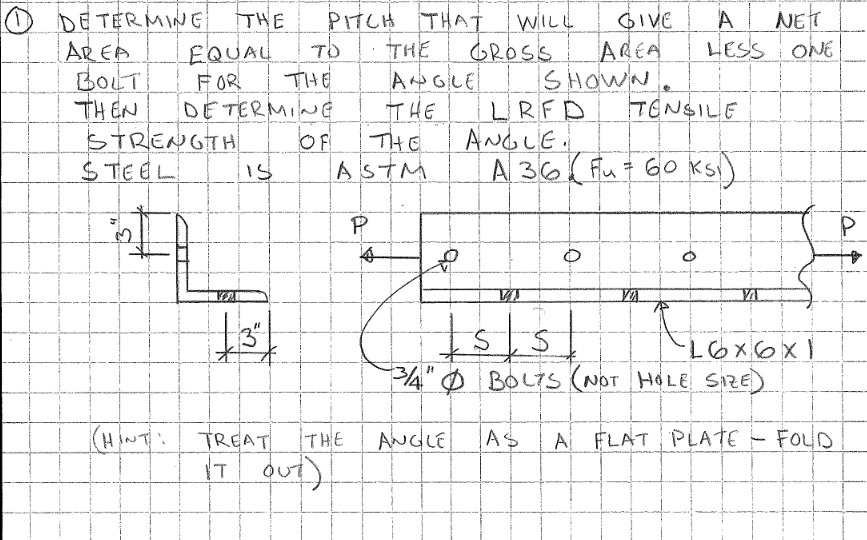 ① DETERMINE THE PITCH THAT WILL GIVE A NET
AREA EQUAL TO THE GROSS AREA LESS ONE
BOLT FOR THE ANGLE SHOWN.
THEN DETERMINE THE LRFD TENSILE
STRENGTH OF THE ANGLE.
STEEL IS ASTM A36 (Fu = 60 KSI)
3"
P
P
3"
S S
L6X6X1
3/4" Ø BOLTS (NOT HOLE SIZE)
(HINT: TREAT THE ANGLE AS A FLAT PLATE - FOLD
IT OUT)